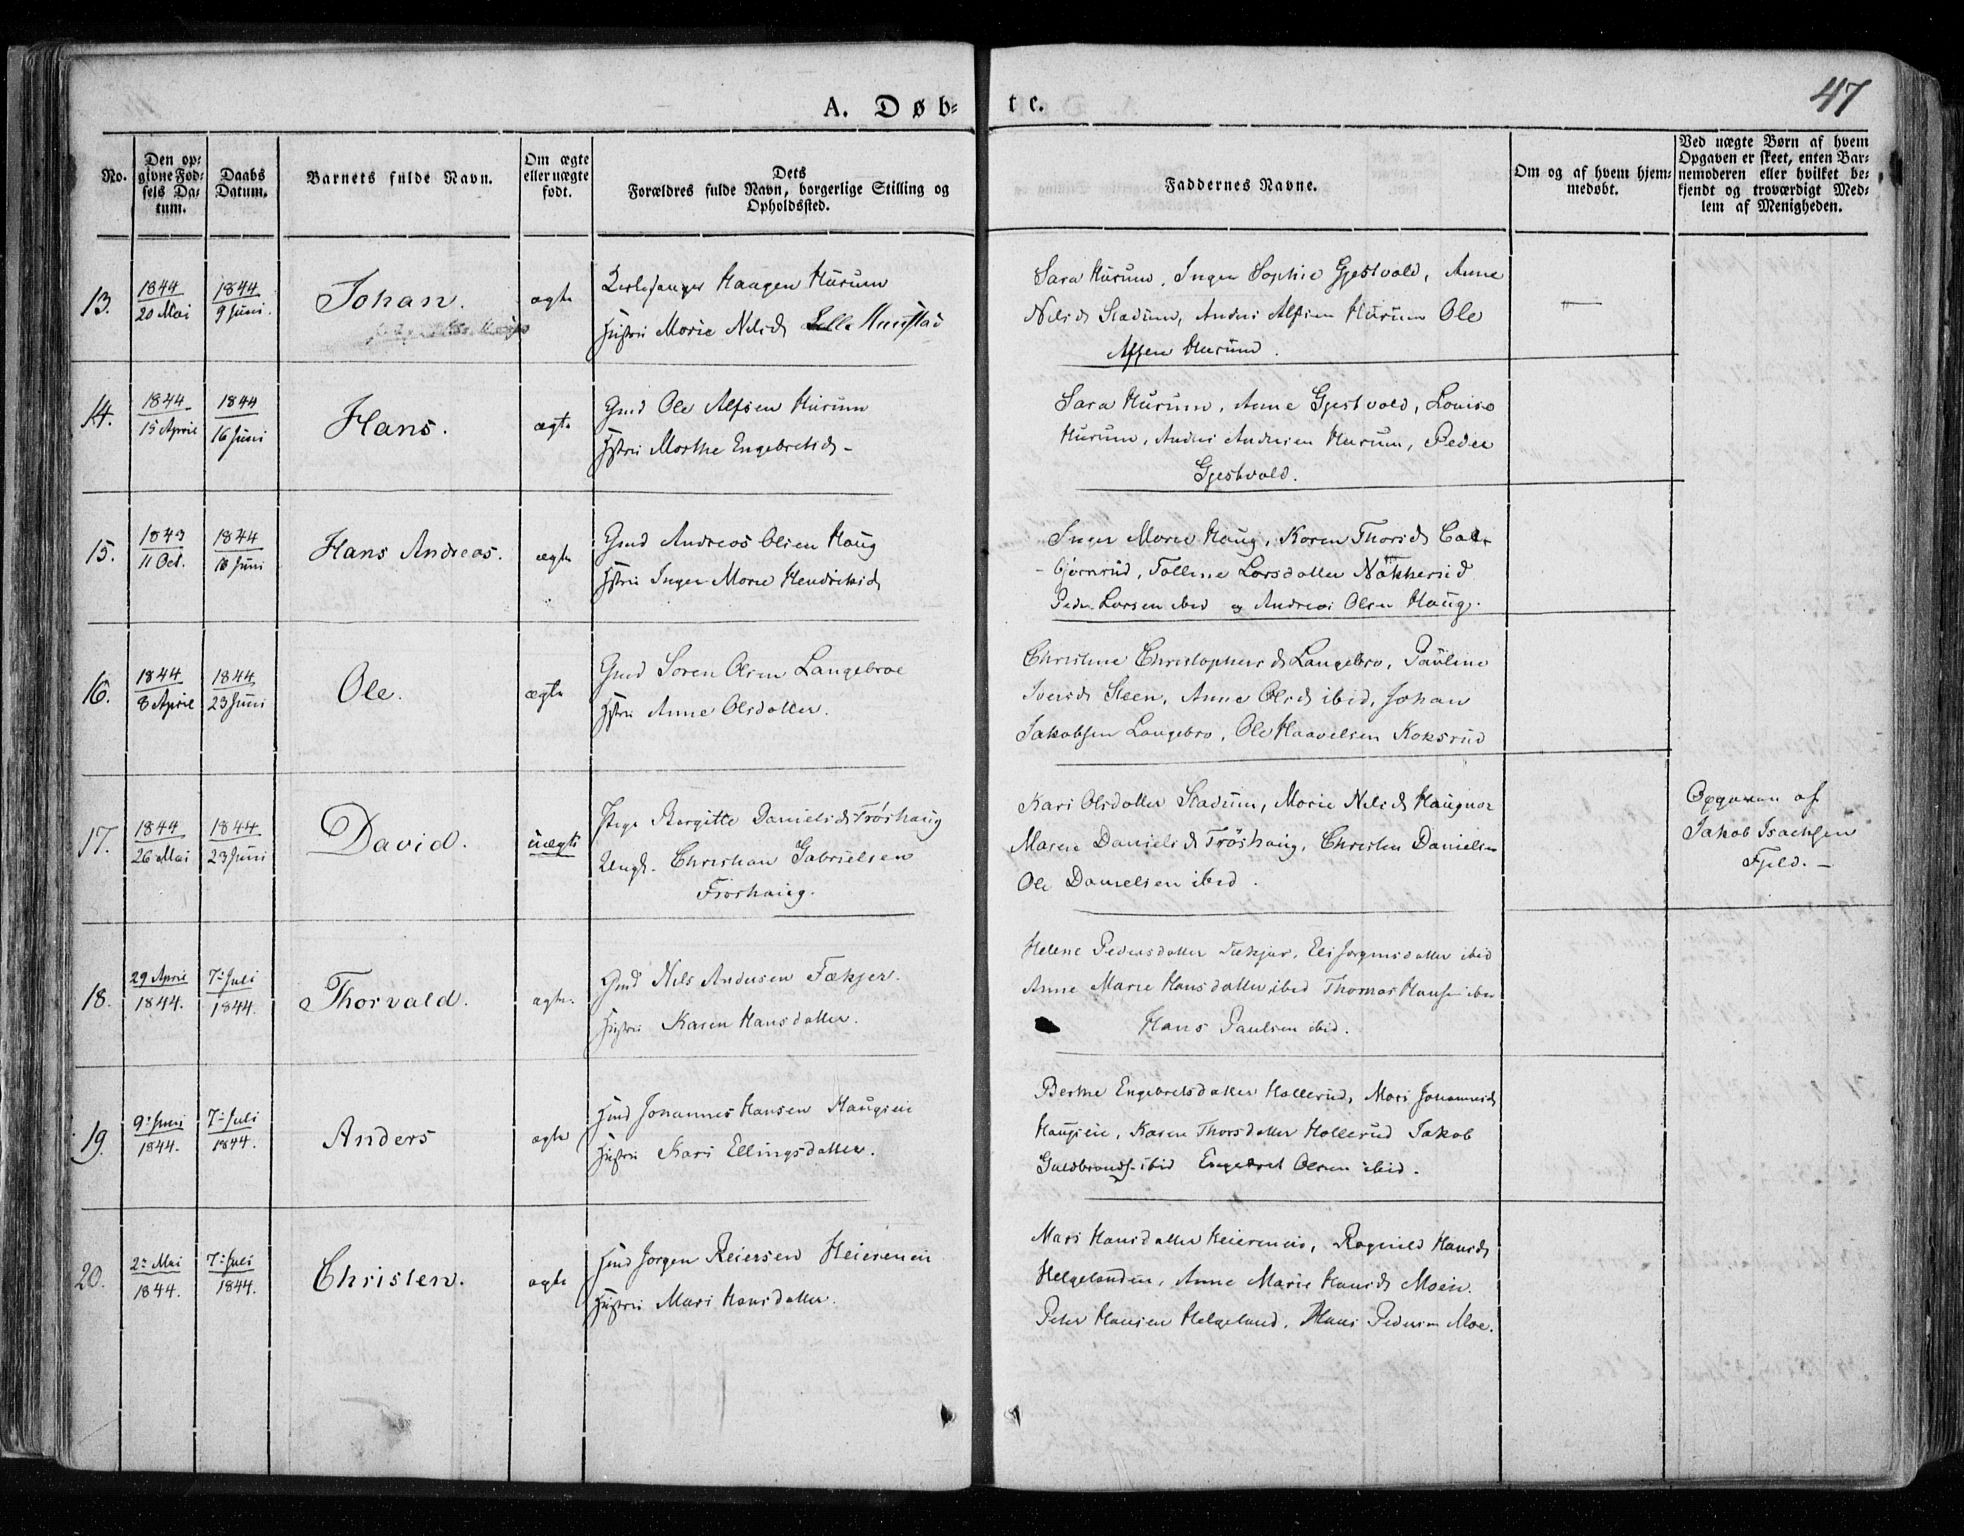 47
A. Døb-
te.
No.
Den op-
givne Fød-
sels Da-
tum.
Daabs
Datum.
Barnets fulde Navn.
Om ægte
eller uægte
født.
Dets
Forældres fulde Navn, borgerlige Stilling og
Opholdssted.
Faddernes Navne.
Om og af hvem hjem-
medøbt.
Ved uægte Børn af hvem
Opgaven er skeet, enten Bar-
nemoderen eller hvilket be-
kjendt og troværdigt Med-
lem af Menigheden.
13.
1844
20 Mai
1844
9 Juni.
Johan.
ægte
Kirkesanger Haagen Hurum
Hustru Marie Nilsd.
Sara Hurum, Inger Sophie Gjestvold, Anne
Nilsd. Stadum, Anders Alfsen Hurum Ole
Alfsen Hurum.
14.
1844
15 April
1844
16 Juni
Hans.
ægte
Gmd Ole Alfsen Hurum
Hstru Marthe Engebretsd. -
Sara Hurum, Anne Gjestvold, Louise
Hurum, Anders Andersen Hurum, Peder
Gjestvold.
15.
1843
11 Oct.
1844
Juni
Hans Andreas.
ægte
Gmd Andreas Olsen Haug
Hstru Inger Marie Hendriksd.
Inger Marie Haug, Karen Thorsd.
Larsdatter
Peder Larsen ibid og Andreas Olsen Haug.
16.
1844
8 April
1844
23 Juni
Ole.
ægte
Gmd Soren Olsen Langebroe
Hstru Anne Olsdatter.
Christine Christophersd. Langebro, Pauline
Iversd. Steen, Anne Olsd. ibid, Johan
Jakobsen Langebro, Ole Haavelsen Koksrud
17.
1844
26 Mai
1844
23 Juni
David.
uægte
Pige Bergitte Danielsd. Frøshaug
Ungk. Christian Gabrielsen
Froshaug.
Kari Olsdatter Stadum, Marie Nilsd. Haugner
Maren Danielsd. Frøshaug, Christen Danielsen
Ole Danielsen ibid.
Opgaven af
Jakob Isachsen
Fjeld. -
18.
29 April
1844.
7de Juli
1844.
Thorvald.
ægte.
Gmd Nils Andersen Fækjer.
Hustru Karen Hansdatter.
Helene Pedersdatter Fækjer, Eli Jorgensdatter ibid
Anne Marie Hansdatter ibid Thomas Hansen ibid
Hans Paulsen ibid.
19.
9de Juni
1844.
7de Juli
1844.
Anders
ægte
Hmd Johannes Hansen Haugseie
Hustru Kari Ellingsdatter.
Berthe Engebretsdatter Hollerud, Mari Johannesd.
Haugseie, Karen Thorsdatter Hollerud Jakob
Guldbrands. ibid Engebret Olsen ibid.
20.
2de Mai
1844.
7de Juli
1844.
Christen.
ægte
Hmd Jorgen Reiersen Heiereneie
Hustru Mari Hansdatter.
Mari Hansdatter Heiereneie, Ragnild Hansd.
Helgelanden, Anne Marie Hansd. Moen.
Peter Hansen Helgeland, Hans Pedersen Moe.